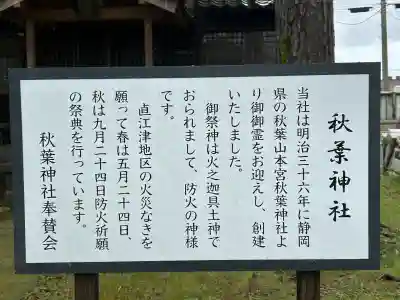 秋葉神社
当社は明治三十六年に静岡
県の秋葉山本宮秋葉神社よ
り御御霊をお迎えし、創建
いたしました。
御祭神は火之迦具土神で
おられまして、防火の神様
です。
直江津地区の火災なきを
願って春は五月二十四日、
秋は九月二十四日防火祈願
の祭典を行っています。
秋葉神社奉賛会